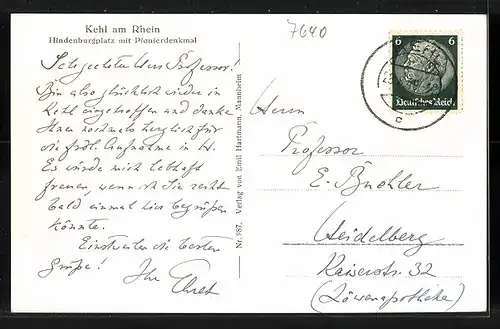 Kehl am Rhein
Hindenburgplatz mit Pionierdenkmal
7640
6 6
Deutsches Reich
c
Sehr geehrter Herr Professor!
Bin also glücklich wieder in
Kehl eingetroffen und danke
Ihnen nochmals herzlich für
die frdl. Aufnahme in H.
Es würde mich lebhaft
freuen, wenn ich Sie recht
bald einmal hier begrüßen
könnte.
Einstweilen die besten
Grüße!
Ihr
Nr. 187. Verlag von Emil Hartmann, Mannheim
Herrn
Professor
E. Buchler
Heidelberg
Kaiserstr. 32
(Löwenapotheke)